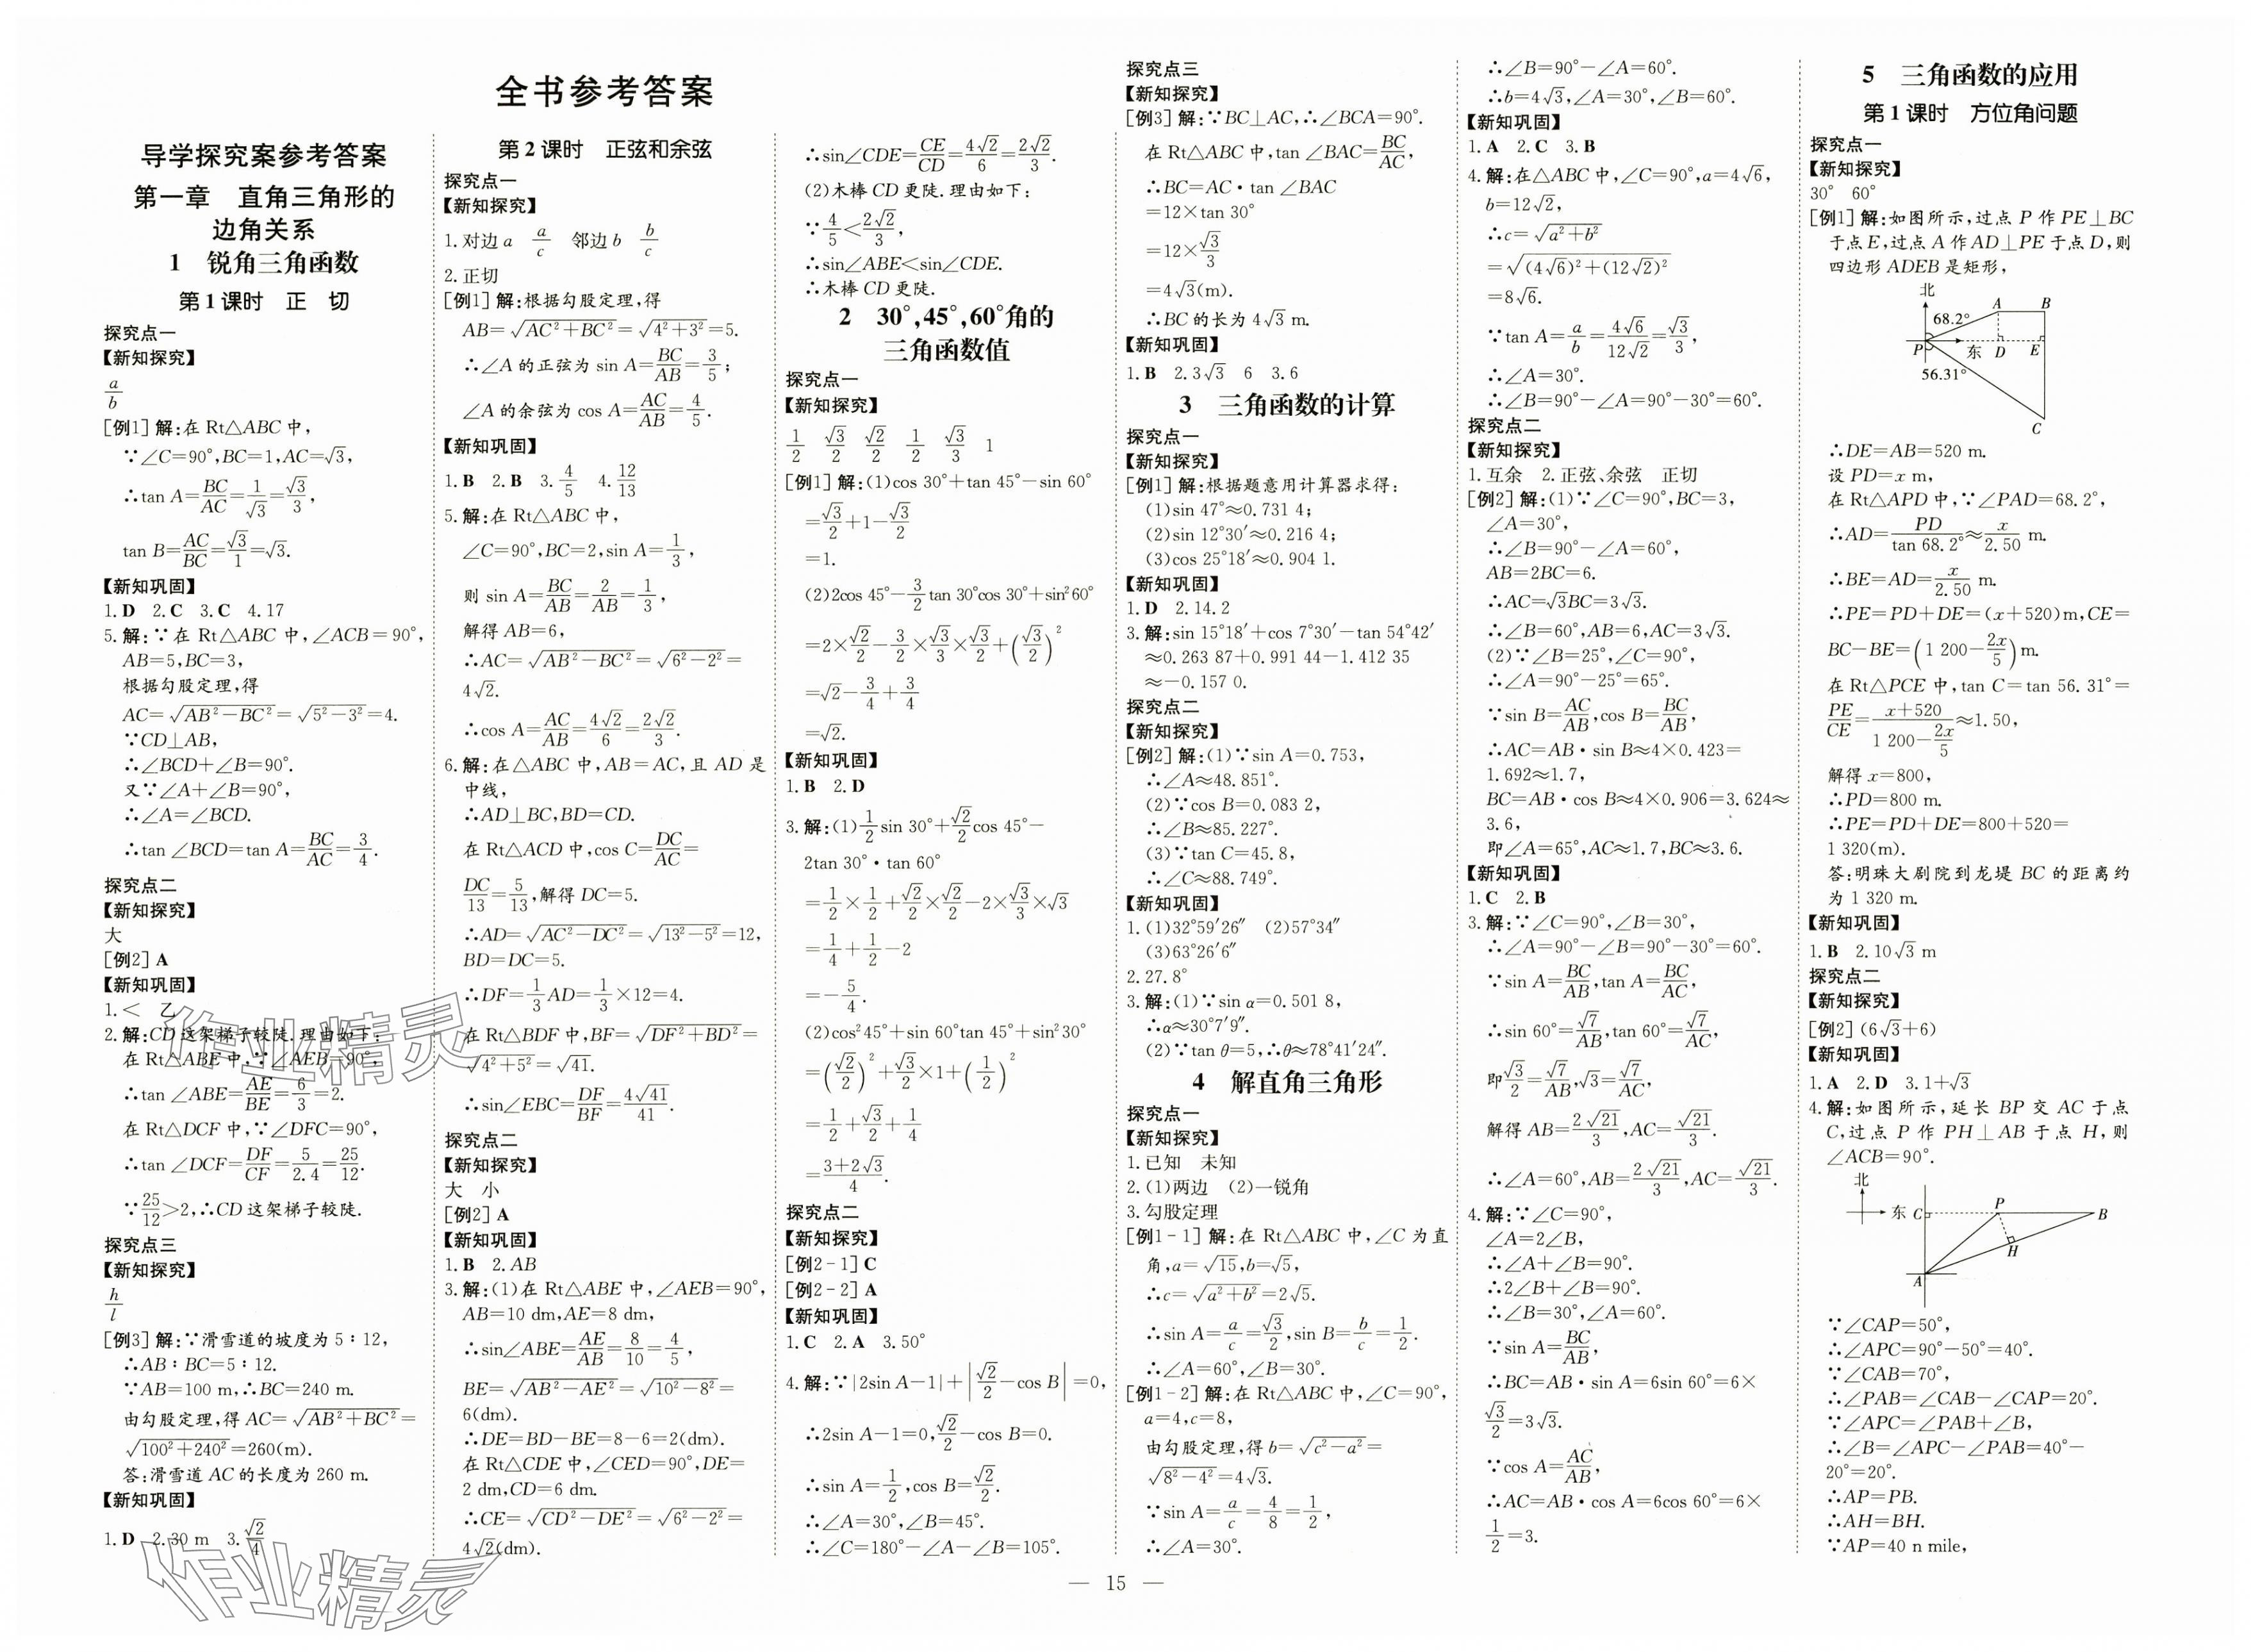 全书参考答案
导学探究案参考答案
第一章 直角三角形的
边角关系
1 锐角三角函数
第1课时 正 切
探究点一
【新知探究】
a/b
[例1] 解:在 Rt△ABC 中,
∵∠C=90°,BC=1,AC=√3,
∴tan A=BC/AC=1/√3=√3/3,
tan B=AC/BC=√3/1=√3.
【新知巩固】
1. D 2. C 3. C 4. 17
5. 解:∵在 Rt△ABC 中,∠ACB=90°,
AB=5,BC=3,
根据勾股定理,得
AC=√(AB²-BC²)=√(5²-3²)=4.
∵CD⊥AB,
∴∠BCD+∠B=90°.
又∵∠A+∠B=90°,
∴∠A=∠BCD.
∴tan ∠BCD=tan A=BC/AC=3/4.
探究点二
【新知探究】
大
[例2] A
【新知巩固】
1. < 乙
2. 解:CD 这架梯子较陡.理由如下:
在 Rt△ABE 中,∵∠AEB=90°,
∴tan ∠ABE=AE/BE=6/3=2.
在 Rt△DCF 中,∵∠DFC=90°,
∴tan ∠DCF=DF/CF=5/2.4=25/12.
∵25/12>2,∴CD 这架梯子较陡.
探究点三
【新知探究】
h/l
[例3] 解:∵滑雪道的坡度为 5∶12,
∴AB∶BC=5∶12.
∵AB=100 m,∴BC=240 m.
由勾股定理,得 AC=√(AB²+BC²)=
√(100²+240²)=260(m).
答:滑雪道 AC 的长度为 260 m.
【新知巩固】
1. D 2. 30 m 3. √2/4
第2课时 正弦和余弦
探究点一
【新知探究】
1. 对边a a/c 邻边b b/c
2. 正切
[例1] 解:根据勾股定理,得
AB=√(AC²+BC²)=√(4²+3²)=5.
∴∠A 的正弦为 sin A=BC/AB=3/5;
∠A 的余弦为 cos A=AC/AB=4/5.
【新知巩固】
1. B 2. B 3. 4/5 4. 12/13
5. 解:在 Rt△ABC 中,
∠C=90°,BC=2,sin A=1/3,
则 sin A=BC/AB=2/AB=1/3,
解得 AB=6,
∴AC=√(AB²-BC²)=√(6²-2²)=
4√2.
∴cos A=AC/AB=4√2/6=2√2/3.
6. 解:在△ABC 中,AB=AC,且 AD 是
中线,
∴AD⊥BC,BD=CD.
在 Rt△ACD 中,cos C=DC/AC=
DC/13=5/13,解得 DC=5.
∴AD=√(AC²-DC²)=√(13²-5²)=12,
BD=DC=5.
∴DF=1/3AD=1/3×12=4.
在 Rt△BDF 中,BF=√(DF²+BD²)=
√(4²+5²)=√41.
∴sin∠EBC=DF/BF=4√41/41.
探究点二
【新知探究】
大 小
[例2] A
【新知巩固】
1. B 2. AB
3. 解:(1)在 Rt△ABE 中,∠AEB=90°,
AB=10 dm,AE=8 dm,
∴sin∠ABE=AE/AB=8/10=4/5,
BE=√(AB²-AE²)=√(10²-8²)=
6(dm).
∴DE=BD-BE=8-6=2(dm).
在 Rt△CDE 中,∠CED=90°,DE=
2 dm,CD=6 dm.
∴CE=√(CD²-DE²)=√(6²-2²)=
4√2(dm).
∴sin∠CDE=CE/CD=4√2/6=2√2/3.
(2)木棒 CD 更陡.理由如下:
∵4/5<2√2/3,
∴sin∠ABE<sin∠CDE.
∴木棒 CD 更陡.
2 30°,45°,60°角的
三角函数值
探究点一
【新知探究】
1/2 √3/2 √2/2 1/2 √3/3 1
[例1] 解:(1)cos 30°+tan 45°-sin 60°
=√3/2+1-√3/2
=1.
(2)2cos 45°-3/2tan 30°cos 30°+sin²60°
=2×√2/2-3/2×√3/3×√3/2+(√3/2)²
=√2-3/4+3/4
=√2.
【新知巩固】
1. B 2. D
3. 解:(1)1/2sin 30°+√2/2cos 45°-
2tan 30°·tan 60°
=1/2×1/2+√2/2×√2/2-2×√3/3×√3
=1/4+1/2-2
=-5/4.
(2)cos²45°+sin 60°tan 45°+sin²30°
=(√2/2)²+√3/2×1+(1/2)²
=1/2+√3/2+1/4
=(3+2√3)/4.
探究点二
【新知探究】
[例2-1] C
[例2-2] A
【新知巩固】
1. C 2. A 3. 50°
4. 解:∵|2sin A-1|+|√2/2-cos B|=0,
∴2sin A-1=0,√2/2-cos B=0.
∴sin A=1/2,cos B=√2/2.
∴∠A=30°,∠B=45°.
∴∠C=180°-∠A-∠B=105°.
探究点三
【新知探究】
[例3] 解:∵BC⊥AC,∴∠BCA=90°.
在 Rt△ABC 中,tan ∠BAC=BC/AC,
∴BC=AC·tan ∠BAC
=12×tan 30°
=12×√3/3
=4√3(m).
∴BC 的长为 4√3 m.
【新知巩固】
1. B 2. 3√3 6 3. 6
3 三角函数的计算
探究点一
【新知探究】
[例1] 解:根据题意用计算器求得:
(1)sin 47°≈0.731 4;
(2)sin 12°30′≈0.216 4;
(3)cos 25°18′≈0.904 1.
【新知巩固】
1. D 2. 14.2
3. 解:sin 15°18′+cos 7°30′-tan 54°42′
≈0.263 87+0.991 44-1.412 35
≈-0.157 0.
探究点二
【新知探究】
[例2] 解:(1)∵sin A=0.753,
∴∠A≈48.851°.
(2)∵cos B=0.083 2,
∴∠B≈85.227°.
(3)∵tan C=45.8,
∴∠C≈88.749°.
【新知巩固】
1. (1)32°59′26″ (2)57°34″
(3)63°26′6″
2. 27.8°
3. 解:(1)∵sin α=0.501 8,
∴α≈30°7′9″.
(2)∵tan θ=5,∴θ≈78°41′24″.
4 解直角三角形
探究点一
【新知探究】
1. 已知 未知
2. (1)两边 (2)一锐角
3. 勾股定理
[例1-1] 解:在 Rt△ABC 中,∠C 为直
角,a=√15,b=√5,
∴c=√(a²+b²)=2√5.
∴sin A=a/c=√3/2,sin B=b/c=1/2.
∴∠A=60°,∠B=30°.
[例1-2] 解:在 Rt△ABC 中,∠C=90°,
a=4,c=8,
由勾股定理,得 b=√(c²-a²)=
√(8²-4²)=4√3.
∵sin A=a/c=4/8=1/2,
∴∠A=30°.
∴∠B=90°-∠A=60°.
∴b=4√3,∠A=30°,∠B=60°.
【新知巩固】
1. A 2. C 3. B
4. 解:在△ABC 中,∠C=90°,a=4√6,
b=12√2,
∴c=√(a²+b²)
=√((4√6)²+(12√2)²)
=8√6.
∵tan A=a/b=4√6/12√2=√3/3,
∴∠A=30°.
∴∠B=90°-∠A=90°-30°=60°.
探究点二
【新知探究】
1. 互余 2. 正弦、余弦 正切
[例2] 解:(1)∵∠C=90°,BC=3,
∠A=30°,
∴∠B=90°-∠A=60°,
AB=2BC=6.
∴AC=√3BC=3√3.
∴∠B=60°,AB=6,AC=3√3.
(2)∵∠B=25°,∠C=90°,
∴∠A=90°-25°=65°.
∵sin B=AC/AB,cos B=BC/AB,
∴AC=AB·sin B≈4×0.423=
1.692≈1.7,
BC=AB·cos B≈4×0.906=3.624≈
3.6,
即∠A=65°,AC≈1.7,BC≈3.6.
【新知巩固】
1. C 2. B
3. 解:∵∠C=90°,∠B=30°,
∴∠A=90°-∠B=90°-30°=60°.
∵sin A=BC/AB,tan A=BC/AC,
∴sin 60°=√7/AB,tan 60°=√7/AC,
即√3/2=√7/AB,√3=√7/AC,
解得 AB=2√21/3,AC=√21/3.
∴∠A=60°,AB=2√21/3,AC=√21/3.
4. 解:∵∠C=90°,
∠A=2∠B,
∴∠A+∠B=90°.
∴2∠B+∠B=90°.
∴∠B=30°,∠A=60°.
∵sin A=BC/AB,
∴BC=AB·sin A=6sin 60°=6×
√3/2=3√3.
∵cos A=AC/AB,
∴AC=AB·cos A=6cos 60°=6×
1/2=3.
5 三角函数的应用
第1课时 方位角问题
探究点一
【新知探究】
30° 60°
[例1] 解:如图所示,过点 P 作 PE⊥BC
于点 E,过点 A 作 AD⊥PE 于点 D,则
四边形 ADEB 是矩形,
北
A B
68.2°
P 东 D E
56.31°
C
∴DE=AB=520 m.
设 PD=x m,
在 Rt△APD 中,∵∠PAD=68.2°,
∴AD=PD/tan 68.2°≈x/2.50 m.
∴BE=AD=x/2.50 m.
∴PE=PD+DE=(x+520)m,CE=
BC-BE=(1 200-2x/5)m.
在 Rt△PCE 中,tan C=tan 56.31°=
PE/CE=(x+520)/(1 200-2x/5)≈1.50,
解得 x=800,
∴PD=800 m.
∴PE=PD+DE=800+520=
1 320(m).
答:明珠大剧院到龙堤 BC 的距离约
为 1 320 m.
【新知巩固】
1. B 2. 10√3 m
探究点二
【新知探究】
[例2] (6√3+6)
【新知巩固】
1. A 2. D 3. 1+√3
4. 解:如图所示,延长 BP 交 AC 于点
C,过点 P 作 PH⊥AB 于点 H,则
∠ACB=90°.
北
东 C P B
H
A
∵∠CAP=50°,
∴∠APC=90°-50°=40°.
∵∠CAB=70°,
∴∠PAB=∠CAB-∠CAP=20°.
∵∠APC=∠PAB+∠B,
∴∠B=∠APC-∠PAB=40°-
20°=20°.
∴AP=PB.
∴AH=BH.
∵AP=40 n mile,
— 15 —
作业精灵
作业精灵